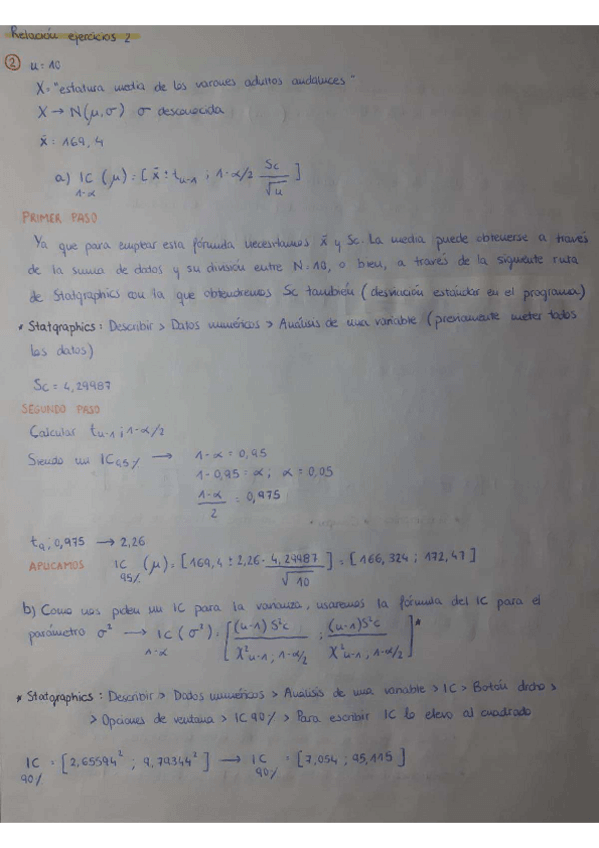 Relación ejercicios 2
② n=10
X="estatura media de los varones adultos andaluces"
X → N(μ,σ) σ desconocida
x̄ = 169,4
a) IC (μ) = [ x̄ ± t n-1 ; 1-α/2 Sc/√n ]
1-α
PRIMER PASO
Ya que para emplear esta fórmula necesitamos x̄ y Sc. La media puede obtenerse a través
de la suma de datos y su división entre N=10, o bien, a través de la siguiente ruta
de Statgraphics con la que obtendremos Sc también (desviación estándar en el programa)
* Statgraphics: Describir > Datos numéricos > Análisis de una variable (previamente meter todos
los datos)
Sc = 4,29487
SEGUNDO PASO
Calcular t n-1 ; 1-α/2
Siendo un IC 95% → 1-α = 0,95
1-0,95 = α ; α = 0,05
1-α/2 = 0,975
t 9 ; 0,975 → 2,26
APLICAMOS IC (μ) = [ 169,4 ± 2,26 · 4,29487/√10 ] = [ 166,324 ; 172,47 ]
95%
b) Como nos piden un IC para la varianza, usaremos la fórmula del IC para el
parámetro σ² → IC (σ²) = [ (n-1) S²c / X² n-1 ; 1-α/2 ; (n-1) S²c / X² n-1 ; 1-α/2 ]*
1-α
* Statgraphics: Describir > Dados numéricos > Análisis de una variable > IC > Botón drcho >
> Opciones de ventana > IC 90% > Para escribir IC lo elevo al cuadrado
IC = [ 2,65594² ; 9,79344² ] → IC = [ 7,054 ; 95,115 ]
90% 90%